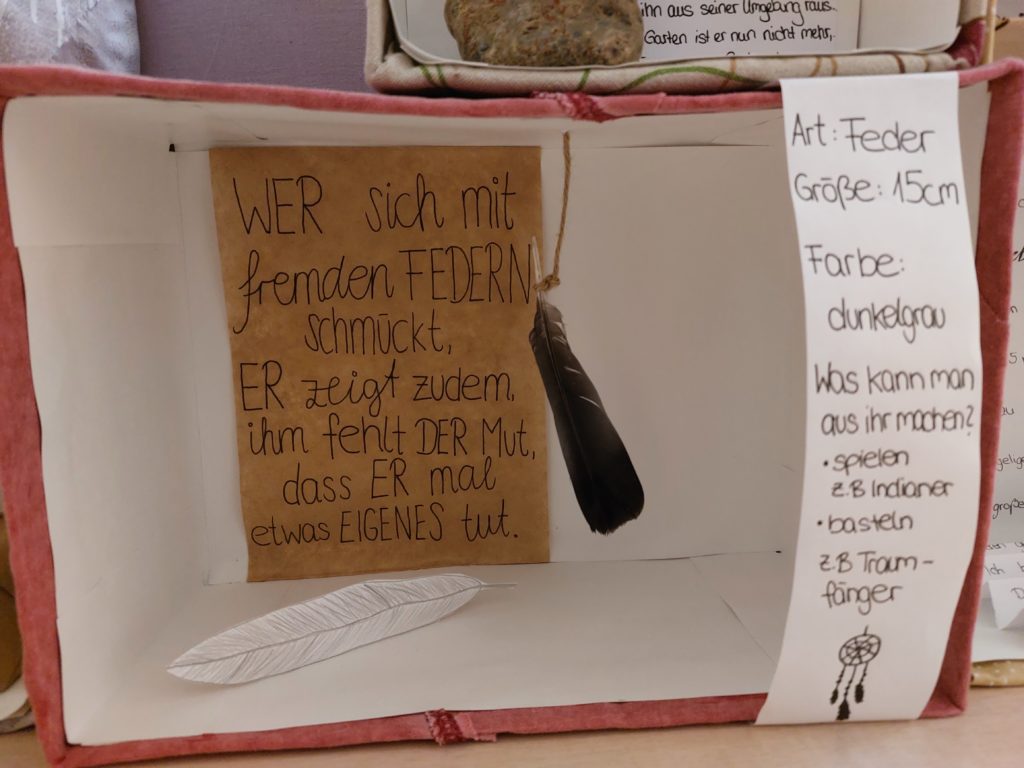 ihn aus seiner Umgebung raus.
Garten ist er nun nicht mehr,
WER sich mit
fremden FEDERN
schmückt,
ER zeigt zudem,
ihm fehlt DER Mut,
dass ER mal
etwas EIGENES tut.
Art: Feder
Größe: 15cm
Farbe:
dunkelgrau
Was kann man
aus ihr machen?
• spielen
z.B Indianer
• basteln
z.B Traum-
fänger